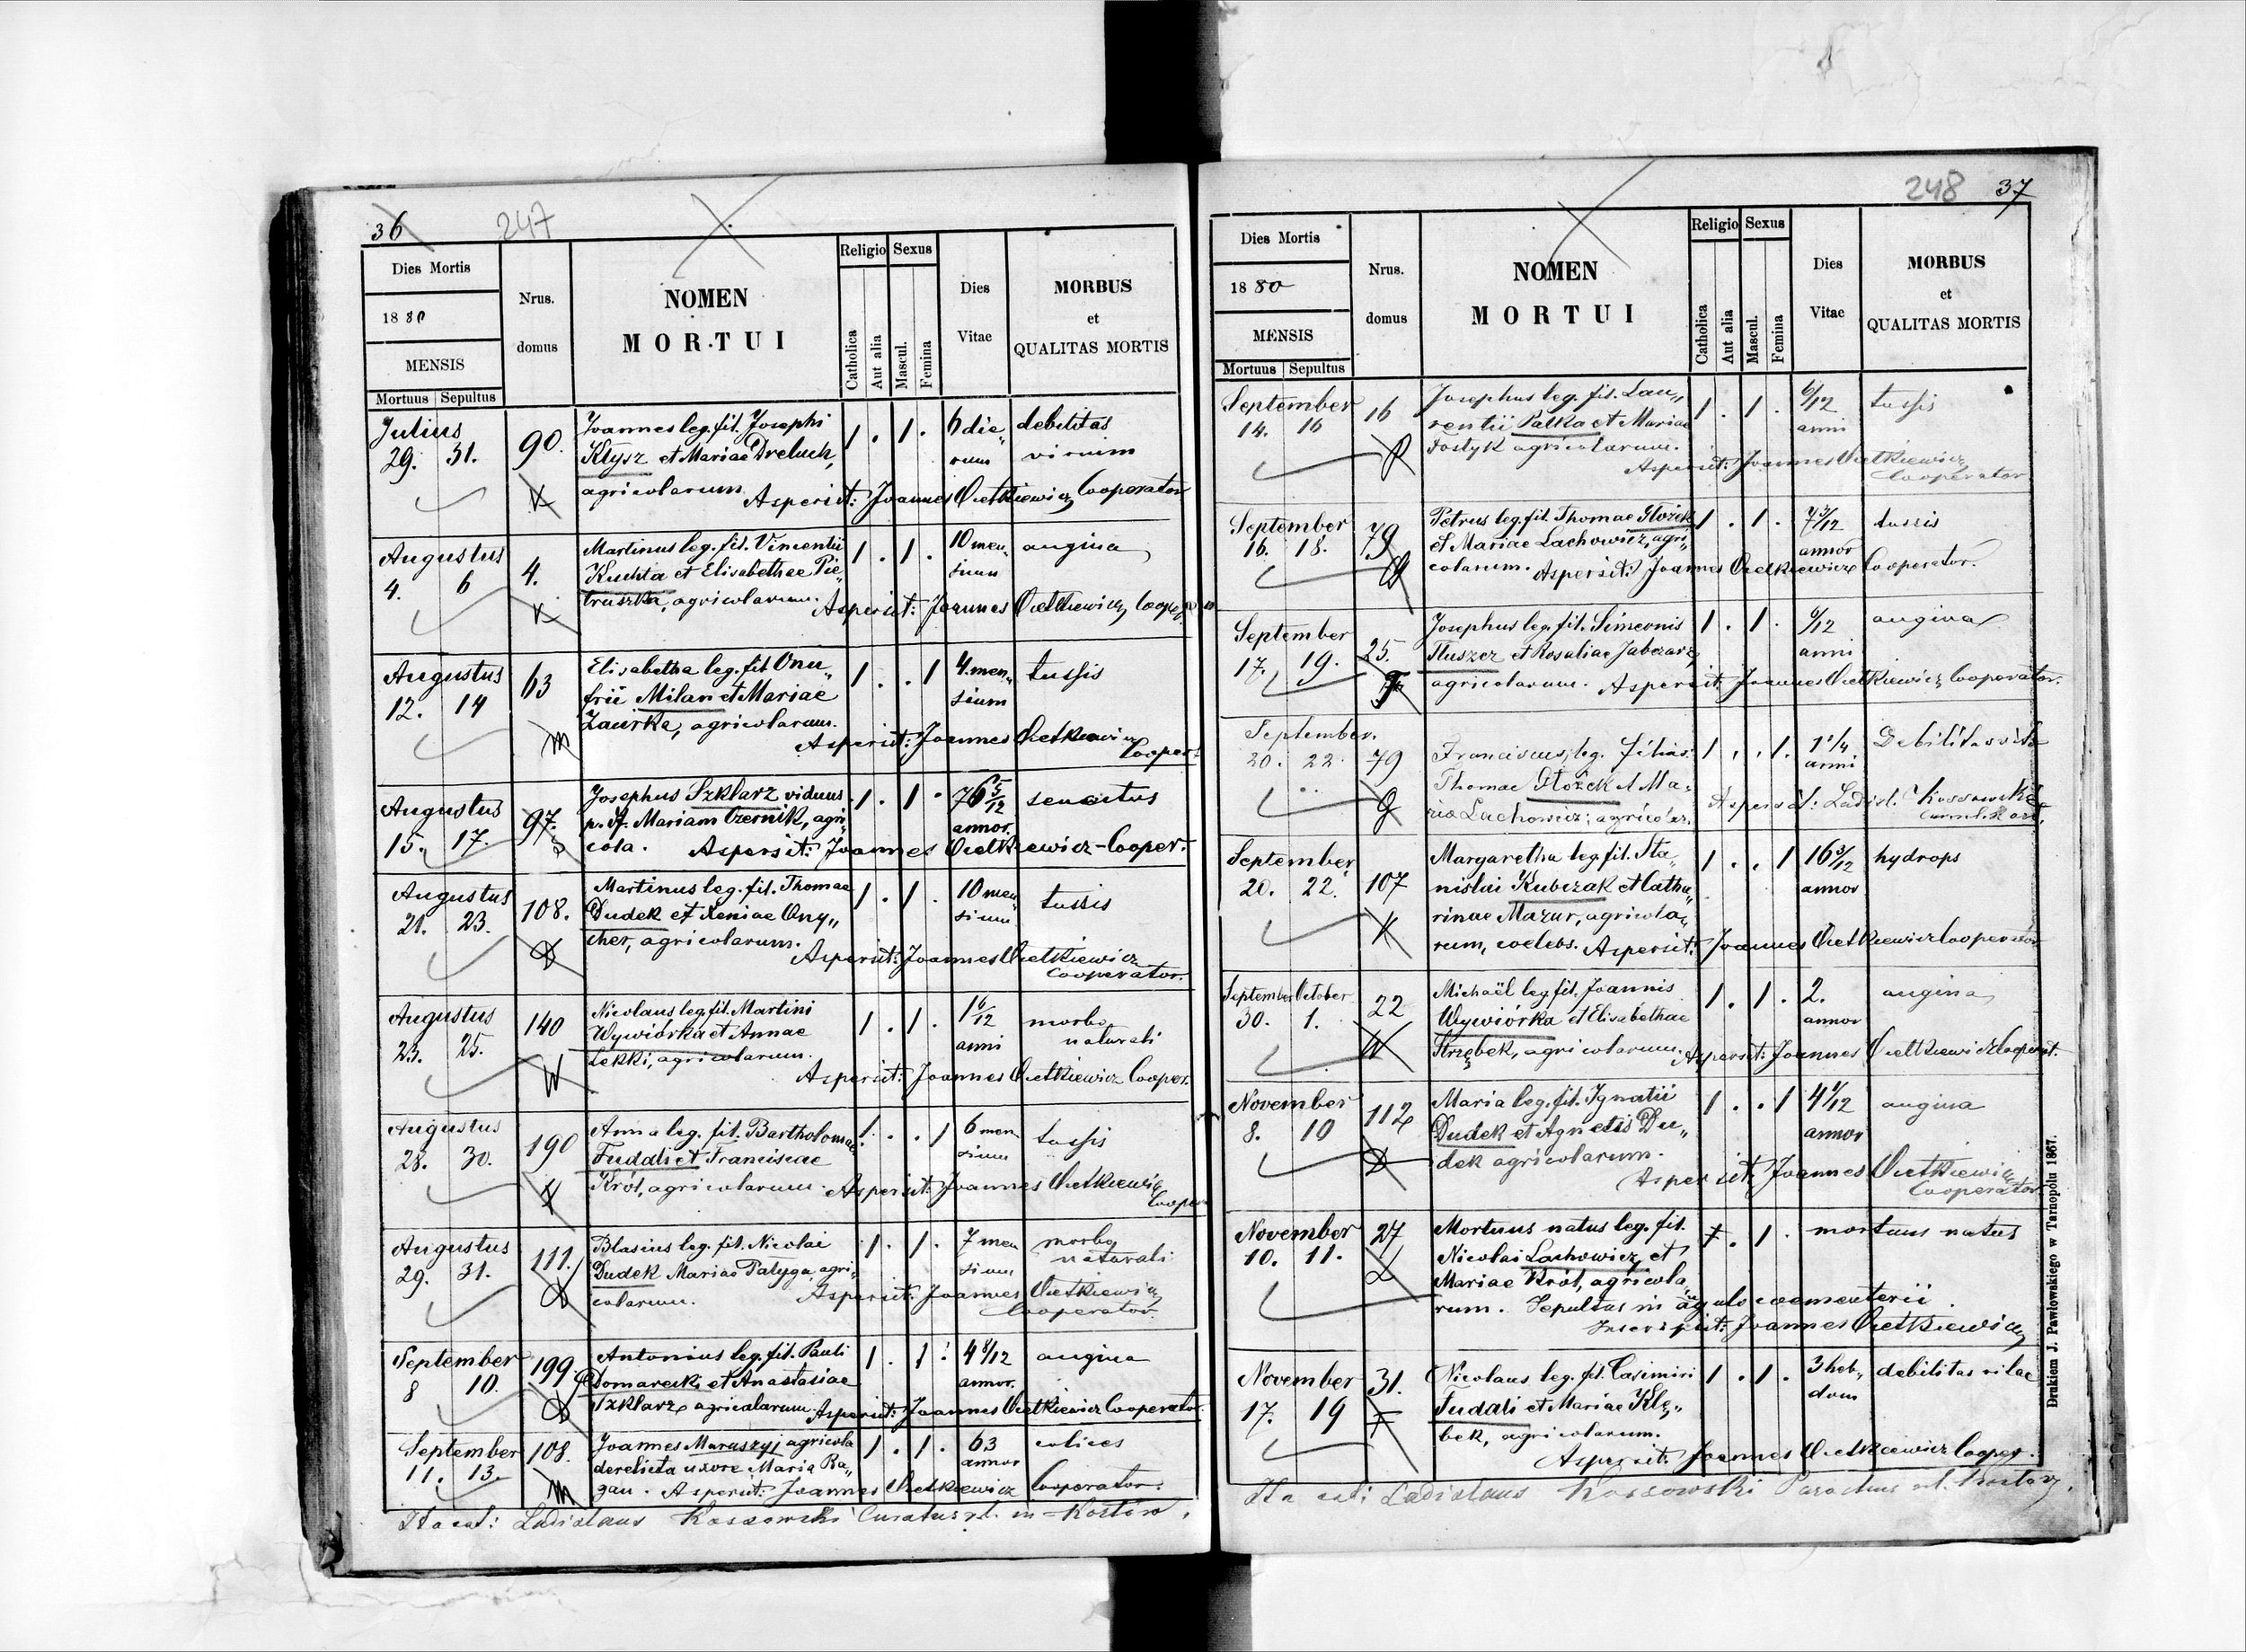 36 247
Dies Mortis
1880
MENSIS
Mortuus Sepultus
Nrus. domus
NOMEN
MORTUI
Religio Sexus
Catholica Aut alia Mascul. Femina
Dies Vitae
MORBUS
et
QUALITAS MORTIS
Julius 90. Joannes leg. fil. Josephi 1 . 1 . 6 die„ debilitas
29. 31. Kłysz et Mariae Dreluch, rum virium
K agricolarum Aspersit: Joannes Cooperator
Augustus 4. Martinus leg. fil. Vincentii 1 . 1 . 10 men„ angina
4. 6 Kuchta et Elisabethae Pie„ sium
K truszka, agricolarum. Aspersit: Joannes
Augustus 63 Elisabetha leg. fil Onu„ 1 . . 1 4 men„ tussis
12. 14 frii Milan et Mariae sium
M Zaurka, agricolarum.
Aspersit: Joannes
Cooper.
Augustus 97. Josephus Szklarz viduus 1 . 1 . 76 5/12 senectus
15. 17. p. df. Mariam Czernik, agri„ annor.
S cola. Aspersit: Joannes Cooper.
Augustus 108. Martinus leg. fil. Thomae 1 . 1 . 10 men„ tussis
21. 23. Dudek et Xeniae Ony„ sium
D cher, agricolarum.
Aspersit: Joannes
Cooperator.
Augustus 140 Nicolaus leg. fil. Martini 1 . 1 . 1 6/12 morbo
23. 25. Wywiórka et Annae anni naturali
W Lekki, agricolarum.
Aspersit: Joannes Cooper.
Augustus 190 Anna leg. fil. Bartholomaei 1 . . 1 6 men tussis
28. 30. Fuddali et Franciscae sium
F Król, agricolarum. Aspersit: Joannes
Cooper
Augustus 111. Blasius leg. fil. Nicolai 1 . 1 . 7 men morbo
29. 31. Dudek Mariae Pałyga agri„ sium naturali
D colarum. Aspersit: Joannes
Cooperator.
September 199. Antonius leg. fil. Pauli 1 . 1 . 4 8/12 angina
8 10. Domarecki et Anastasiae annor.
D Szklarz agricolarum Aspersit: Joannes Cooperator.
September 108. Joannes Maruszyj agricola 1 . 1 . 63 colices
11. 13. derelicta uxore Maria Ra„ annor
M gan. Aspersit: Joannes Cooperator.
Ita est: Ladislaus Kossowski Curatus in
248 37
Dies Mortis
1880
MENSIS
Mortuus Sepultus
Nrus. domus
NOMEN
MORTUI
Religio Sexus
Catholica Aut alia Mascul. Femina
Dies Vitae
MORBUS
et
QUALITAS MORTIS
September 16 Josephus leg. fil. Lau„ 1 . 1 . 6/12 tussis
14. 16 rentii Pałka et Mariae anni
P Fostyk agricolarum.
Aspersit: Joannes
Cooperator
September 79 Petrus leg. fil. Thomae Głożek 1 . 1 . 7 3/12 tussis
16. 18. et Mariae Lachowicz, agri„ annor
G colarum. Aspersit: Joannes Cooperator.
September 25. Josephus leg. fil. Simeonis 1 . 1 . 6/12 angina
17. 19. Tłuszcz et Rosaliae Jabczarz, anni
T agricolarum. Aspersit: Joannes Cooperator.
September.
20. 22. 79 Franciscus, leg. filius 1 . . 1. 1 1/4 Debilitas vitae
Thomae Głożek et Ma„ anni
G riae Lachowicz; agricolar. Aspersit: Ladisl. Kossowski
September 107 Margaretha leg. fil. Sta„ 1 . . 1 16 3/12 hydrops
20. 22. nislai Kubczak et Catha„ annor
K rinae Mazur, agricola„
rum, coelebs. Aspersit: Joannes Cooperator
September October 22 Michaël leg. fil. Joannis 1 . 1 . 2. angina
30. 1. Wywiórka et Elisabethae annor
W Strzębek, agricolarum. Aspersit: Joannes
November 112 Maria leg. fil. Ignatii 1 . . 1 4 1/12 angina
8. 10 Dudek et Agnetis Du„ annor
D dek agricolarum.
Aspersit: Joannes
Cooperator
November 27 Mortuus natus leg. fil. † . 1 . mortuus natus
10. 11. Nicolai Lachowicz et
L Mariae Król, agricola„
rum. Sepultus in coementerii.
Inscripsit: Joannes
November 31. Nicolaus leg. fil. Casimiri 1 . 1 . 3 heb„ debilitas vitae
17. 19 Fudali et Mariae Klę„ dom
F bek, agricolarum.
Aspersit: Joannes Cooper.
Ita est: Ladislaus Kossowski Parochus
Drukiem J. Pawłowskiego w Tarnopolu 1867.